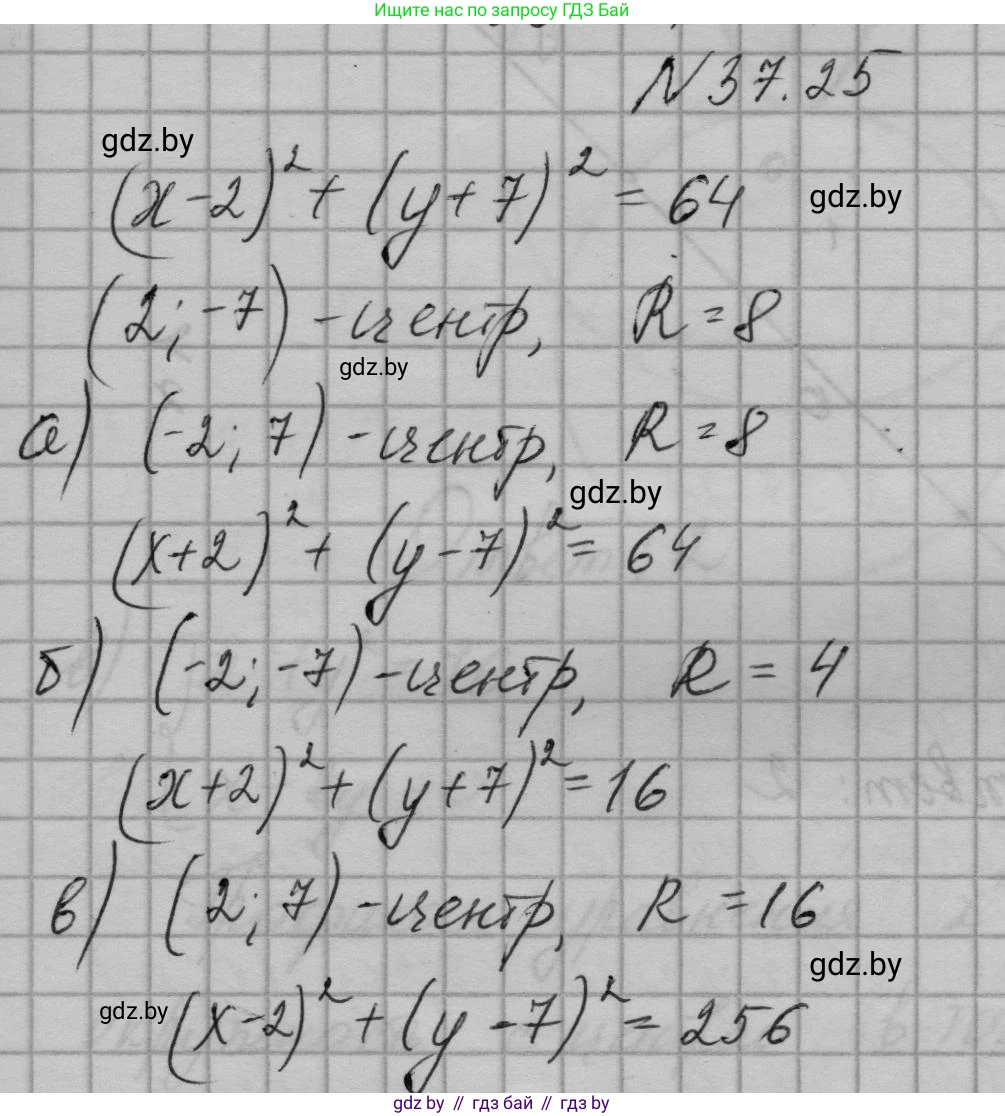 Ищите нас по запросу ГДЗ Бай
N 37.25
gdz.by
(x-2)² + (y+7)² = 64
gdz.by
(2; -7) - центр, R = 8
gdz.by
а) (-2; 7) - центр, R = 8
gdz.by
(x+2)² + (y-7)² = 64
б) (-2; -7) - центр, R = 4
(x+2)² + (y+7)² = 16
в) (2; 7) - центр, R = 16
gdz.by
gdz.by
(x-2)² + (y-7)² = 256
gdz.by // гдз бай // гдз by